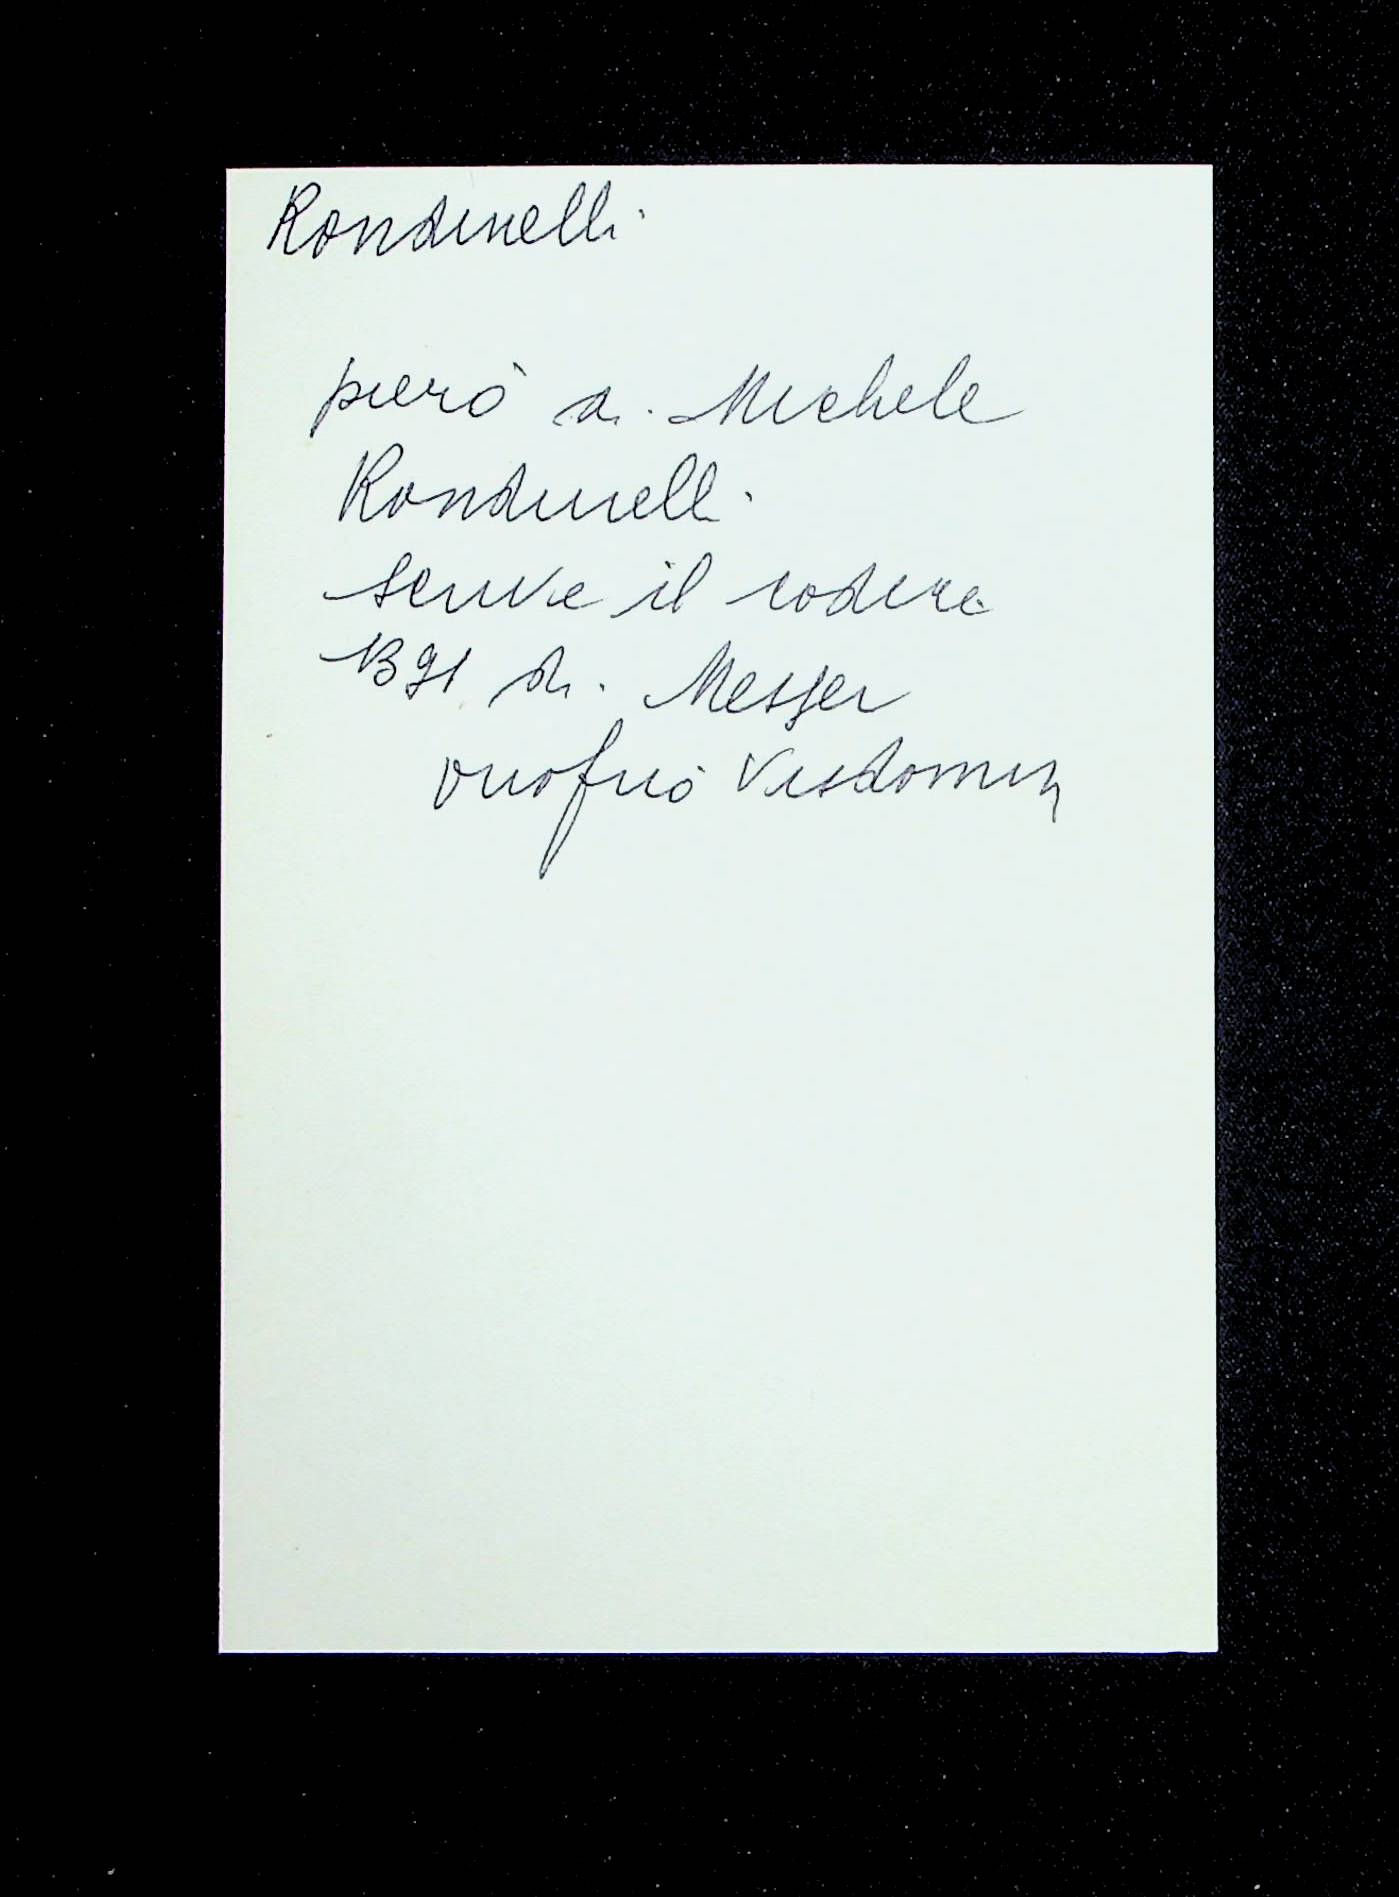 Rondinelli
piero di Michele
Rondinelli
scrive il codice
1391 di Messer
onofrio Visdomin